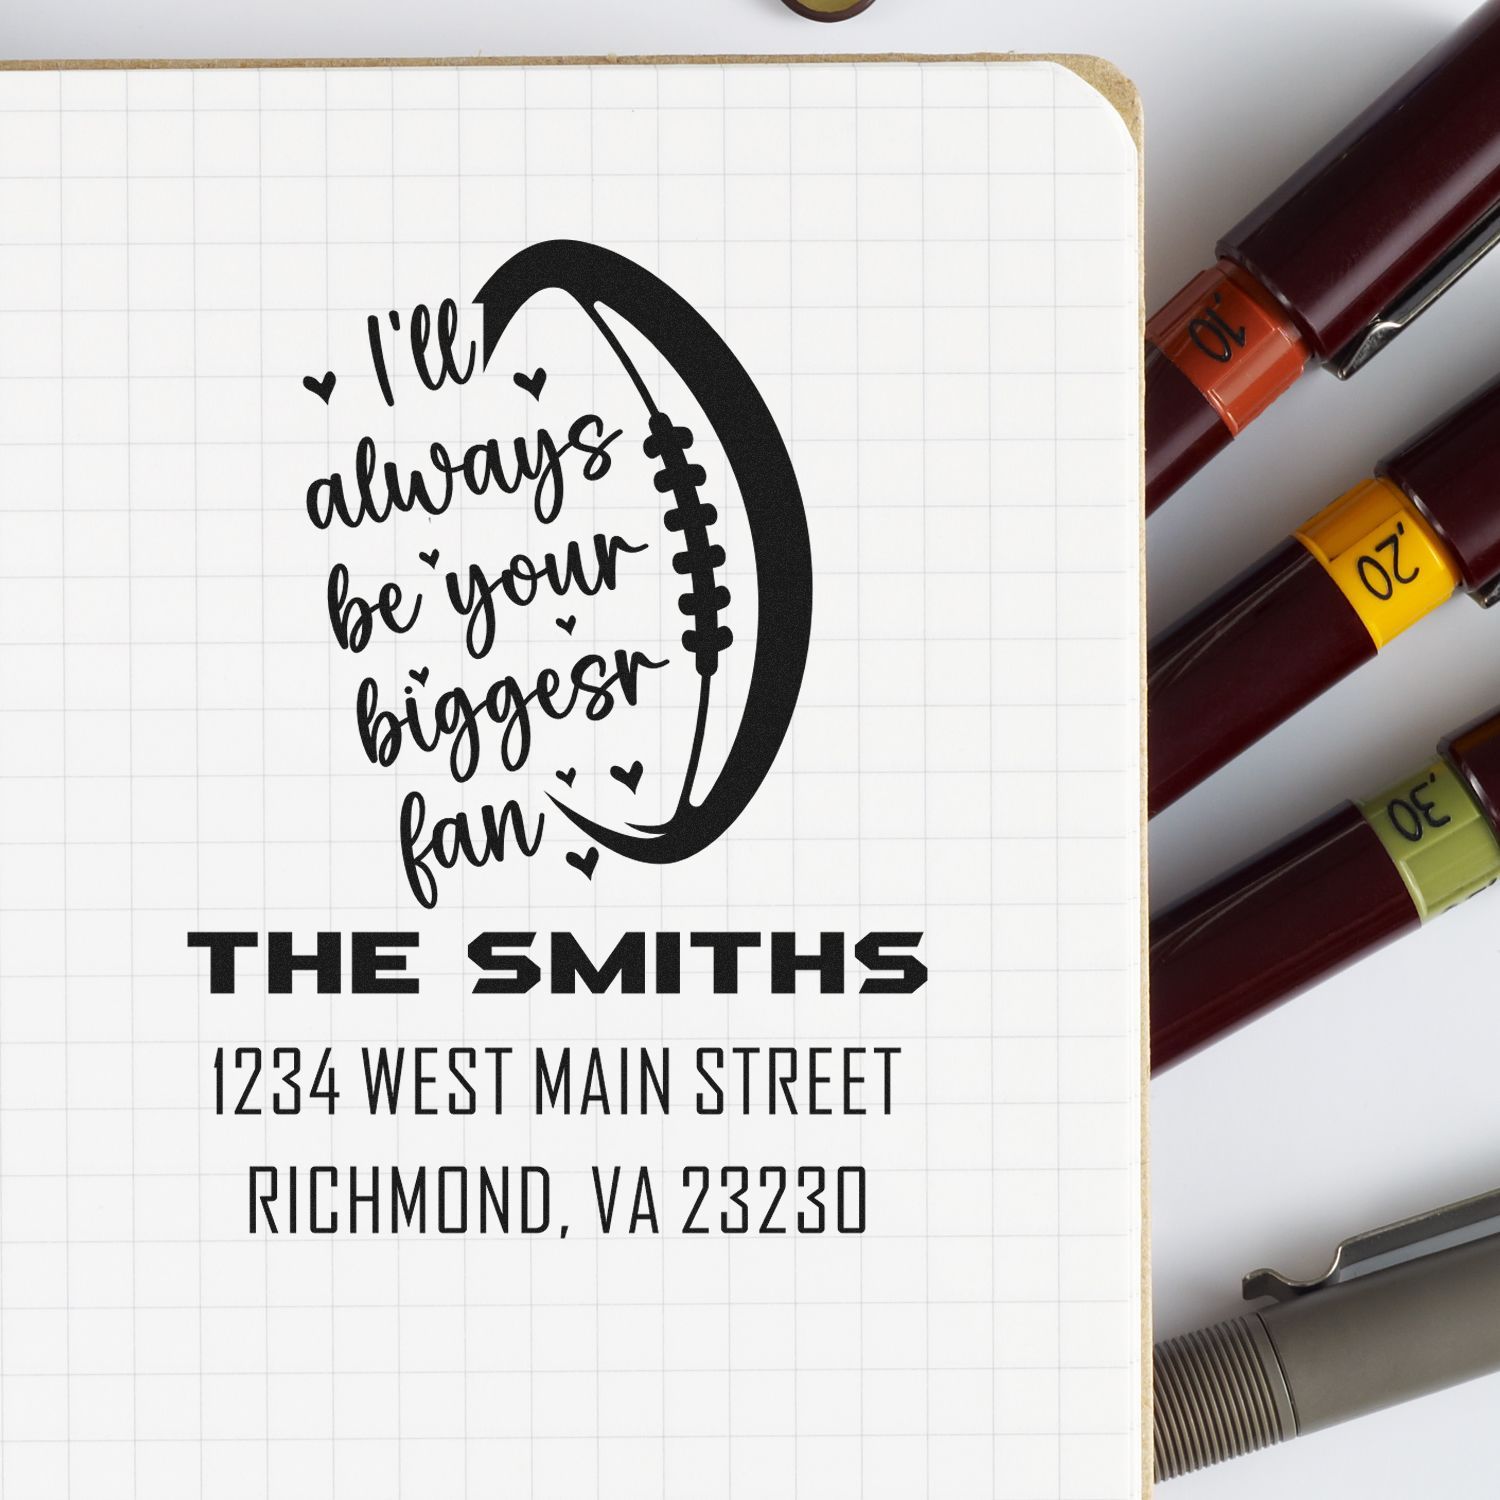 I'll
always
be your
biggesr
fan
THE SMITHS
1234 WEST MAIN STREET
RICHMOND, VA 23230
.10
.20
.30